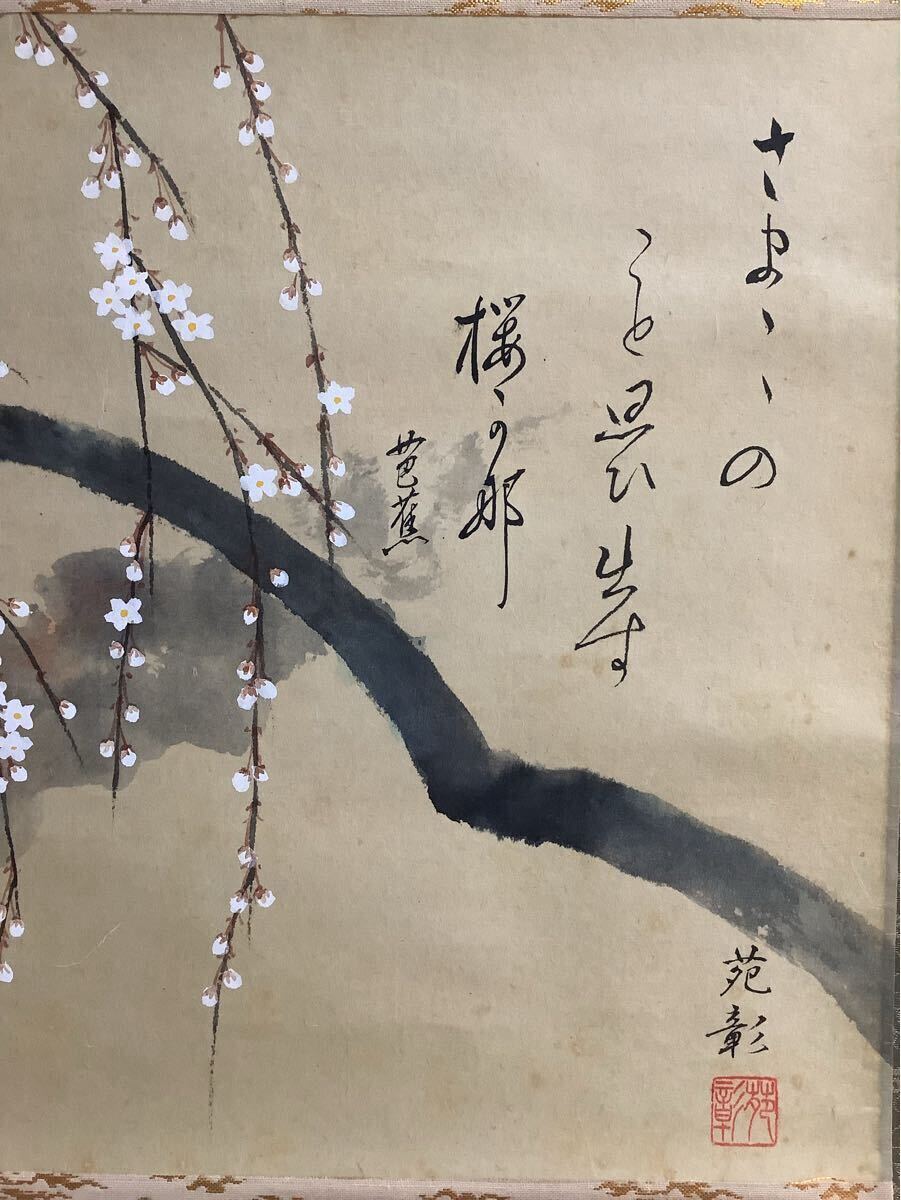 さまゝゝの
こと思ひ出す
桜かな那
芭蕉
苑彰
苑彰